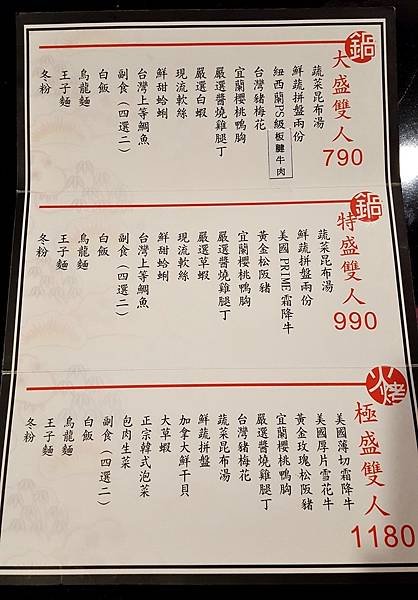 鍋
大盛雙人
790
蔬菜昆布湯
鮮蔬拼盤兩份
紐西蘭PS級板腱牛肉
台灣豬梅花
宜蘭櫻桃鴨胸
嚴選醬燒雞腿丁
嚴選白蝦
現流軟絲
鮮甜蛤蜊
台灣上等鯛魚
副食（四選二）
白飯
烏龍麵
王子麵
冬粉
鍋
特盛雙人
990
蔬菜昆布湯
鮮蔬拼盤兩份
美國PRIME霜降牛
黃金松阪豬
宜蘭櫻桃鴨胸
嚴選醬燒雞腿丁
嚴選草蝦
現流軟絲
鮮甜蛤蜊
台灣上等鯛魚
副食（四選二）
白飯
烏龍麵
王子麵
冬粉
火烤
極盛雙人
1180
美國薄切霜降牛
美國厚片雪花牛
黃金玫瑰松阪豬
宜蘭櫻桃鴨胸
嚴選醬燒雞腿丁
台灣豬梅花
蔬菜昆布湯
鮮蔬拼盤
加拿大鮮干貝
大草蝦
正宗韓式泡菜
包肉生菜
副食（四選二）
白飯
烏龍麵
王子麵
冬粉